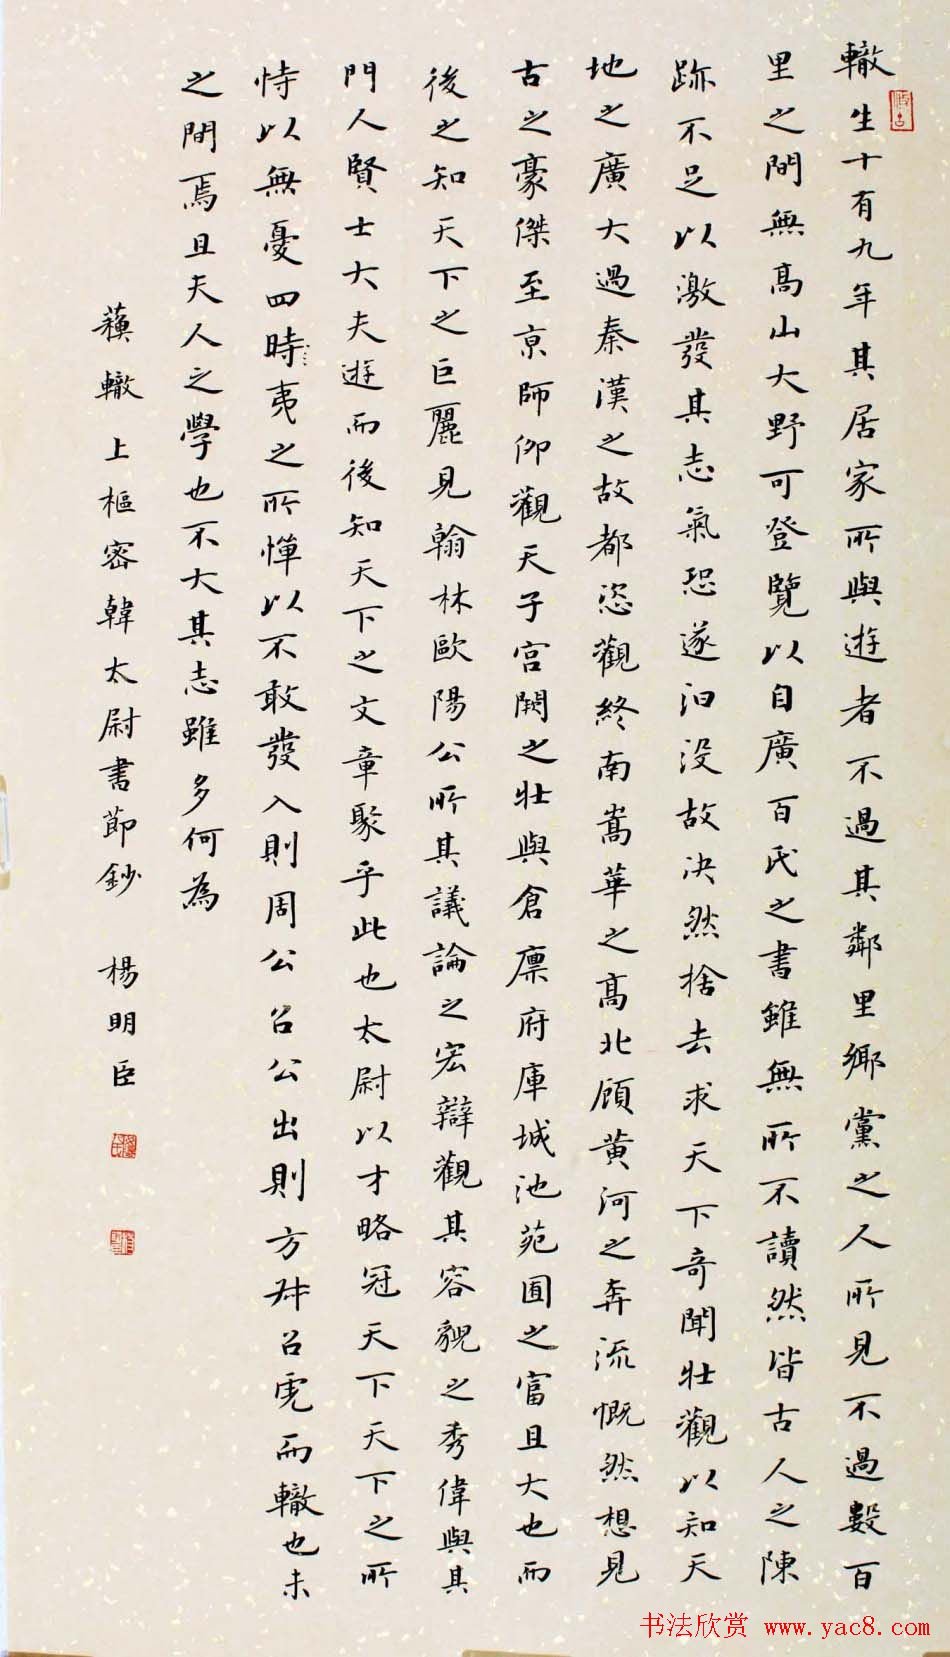 轍生十有九年其居家所與遊者不過其鄰里鄉黨之人所見不過數百
里之間無高山大野可登覽以自廣百氏之書雖無所不讀然皆古人之陳
跡不足以激發其志氣恐遂汩没故決然捨去求天下奇聞壯觀以知天
地之廣大過秦漢之故都恣觀終南嵩華之高北顧黄河之奔流慨然想見
古之豪傑至京師仰觀天子宫闕之壯與倉廪府庫城池苑囿之富且大也而
後之知天下之巨麗見翰林歐陽公所其議論之宏辯觀其容貌之秀偉與其
門人賢士大夫遊而後知天下之文章聚乎此也太尉以才略冠天下天下之所
恃以無憂四時夷之所憚以不敢發入則周公召公出則方叔召虎而轍也未
之間焉且夫人之學也不大其志雖多何為
蘇轍上樞密韓太尉書節鈔 楊明臣
书法欣赏 www.yac8.com